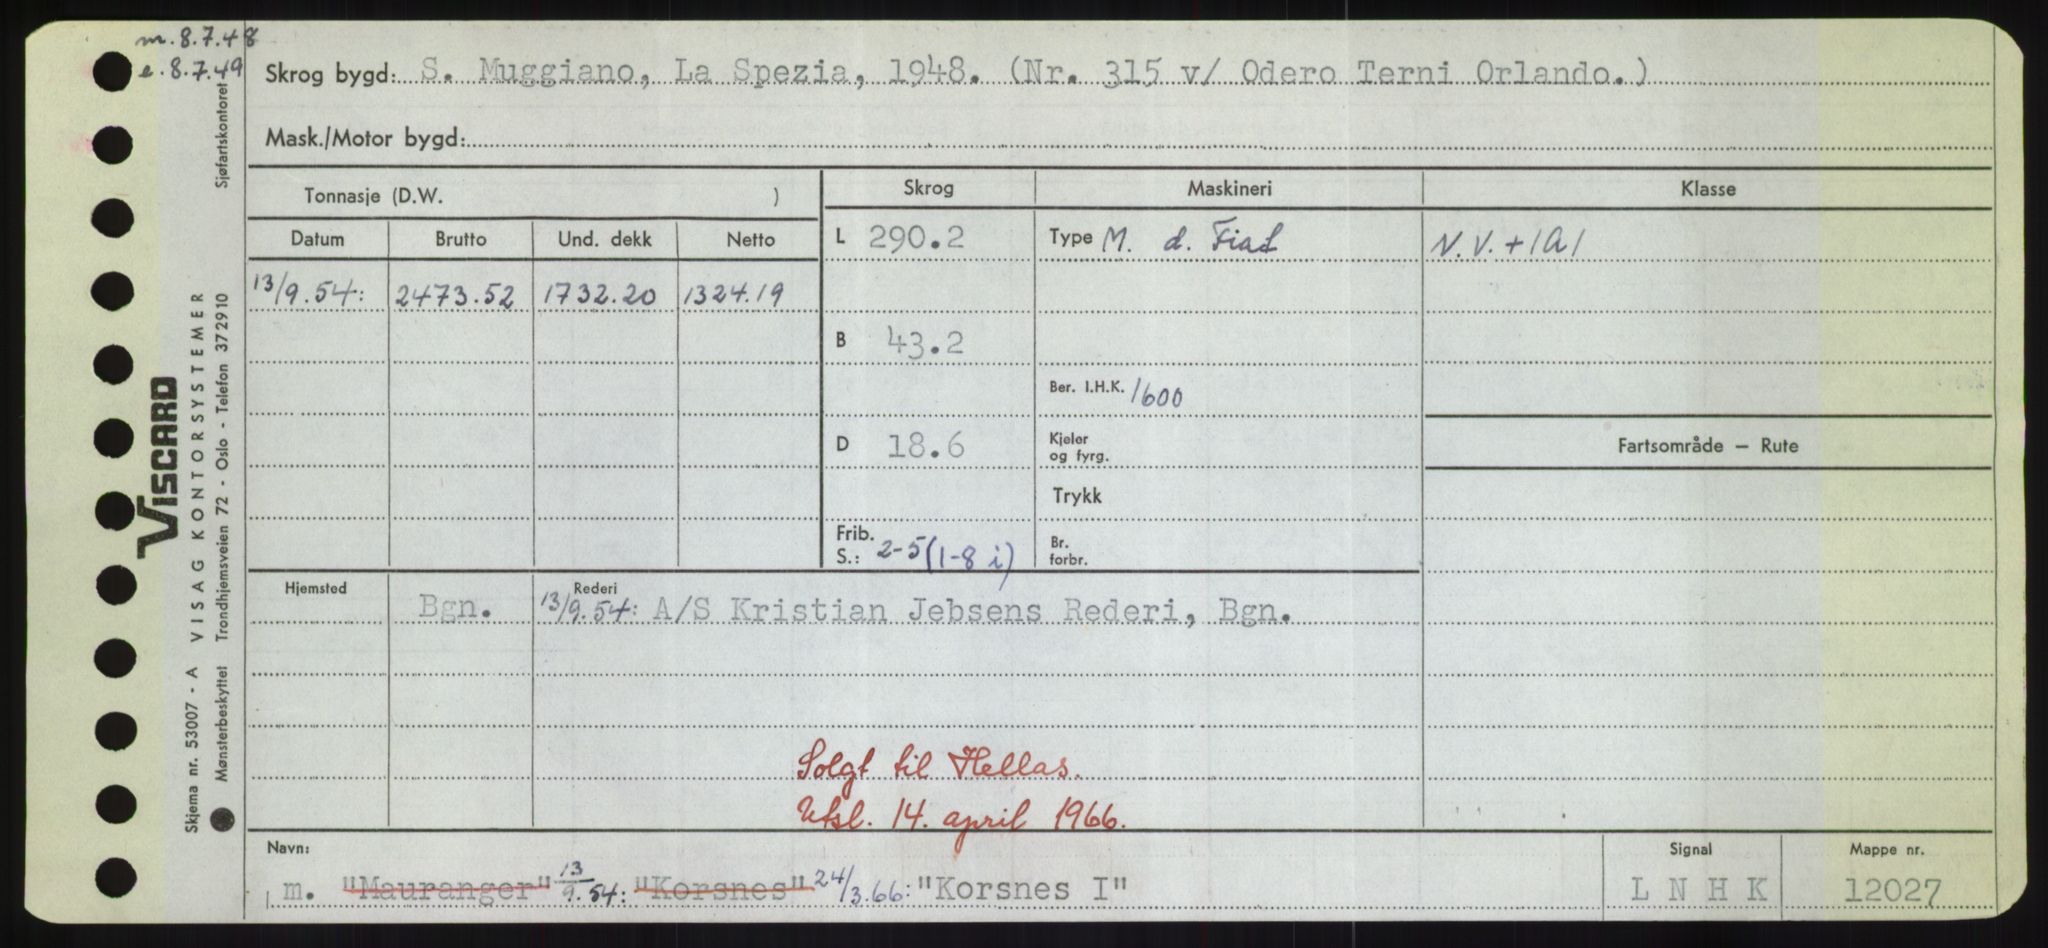 m. 8.7.48
e. 8.7.49
Skrog bygd: S. Muggiano, La Spezia, 1948. (Nr. 315 v/ Odero Terni Orlando.)
Mask./Motor bygd:
Tonnasje (D.W. )
Skrog Maskineri Klasse
Datum Brutto Und. dekk Netto
L 290.2 Type M. d. Fiat N.V. + 1A1
13/9.54: 2473.52 1732.20 1324.19
B 43.2
Ber. I.H.K. 1600
D 18.6 Kjeler
og fyrg.
Fartsområde — Rute
Trykk
Frib.
S.: 2-5 (1-8 i) Br.
forbr.
Hjemsted Rederi
Bgn. 13/9.54: A/S Kristian Jebsens Rederi, Bgn.
Solgt til Hellas.
Utsl. 14. april 1966.
Navn: Signal Mappe nr.
m. "Mauranger" 13/9.54: "Korsnes" 24/3.66: "Korsnes I" L N H K 12027
VISCARD
Skjema nr. 53007 - A VISAG KONTORSYSTEMER
Mønsterbeskyttet Trondhjemsveien 72 - Oslo - Telefon 372910 Sjøfartskontoret